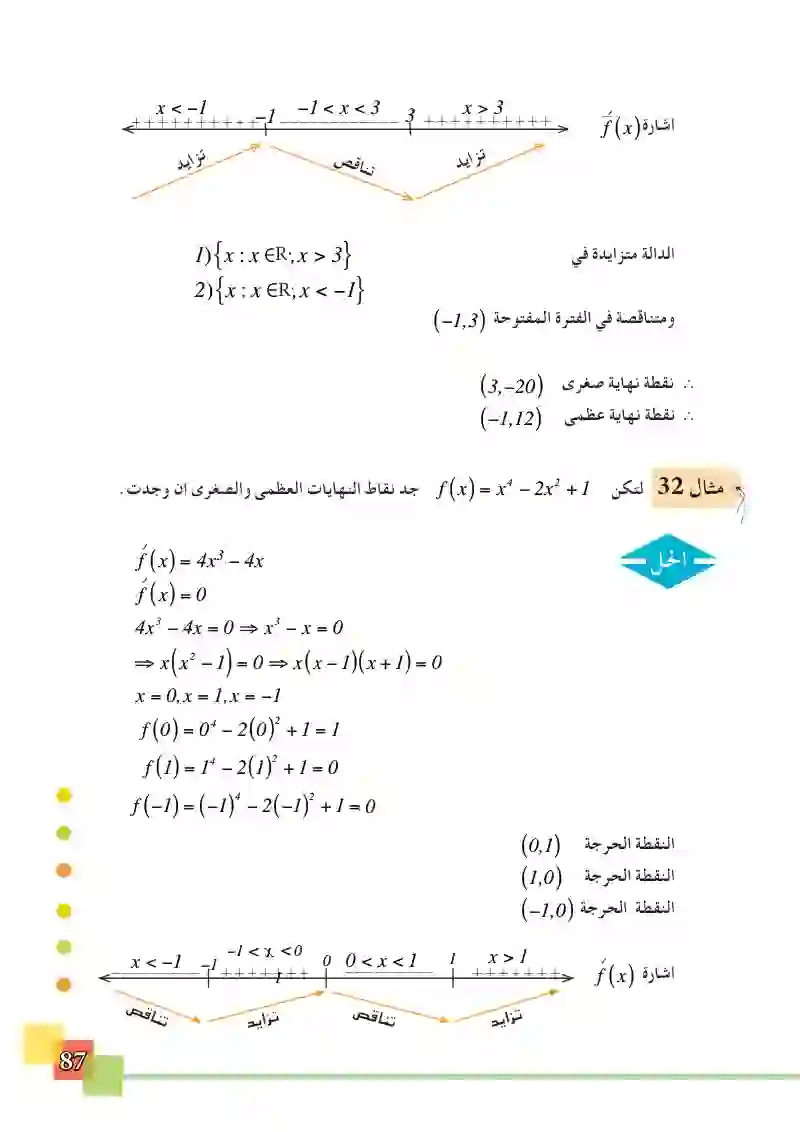 x < −1 −1 < x < 3 x > 3
+ + + + + + + + + + −1 3 + + + + + + + + + + اشارة f́(x)
تزايد تناقص تزايد
الدالة متزايدة في 1){x : x ∈R, x > 3}
2){x : x ∈R, x < −1}
ومتناقصة في الفترة المفتوحة (−1,3)
∴ نقطة نهاية صغرى (3,−20)
∴ نقطة نهاية عظمى (−1,12)
مثال 32 لتكن f(x) = x⁴ − 2x² + 1 جد نقاط النهايات العظمى والصغرى ان وجدت.
الحل
f́(x) = 4x³ − 4x
f́(x) = 0
4x³ − 4x = 0 ⇒ x³ − x = 0
⇒ x(x² − 1) = 0 ⇒ x(x − 1)(x + 1) = 0
x = 0, x = 1, x = −1
f(0) = 0⁴ − 2(0)² + 1 = 1
f(1) = 1⁴ − 2(1)² + 1 = 0
f(−1) = (−1)⁴ − 2(−1)² + 1 = 0
النقطة الحرجة (0,1)
النقطة الحرجة (1,0)
النقطة الحرجة (−1,0)
x < −1 −1 −1 < x < 0 0 0 < x < 1 1 x > 1
+ + + + + + + + + + + + + + اشارة f́(x)
تناقص تزايد تناقص تزايد
87